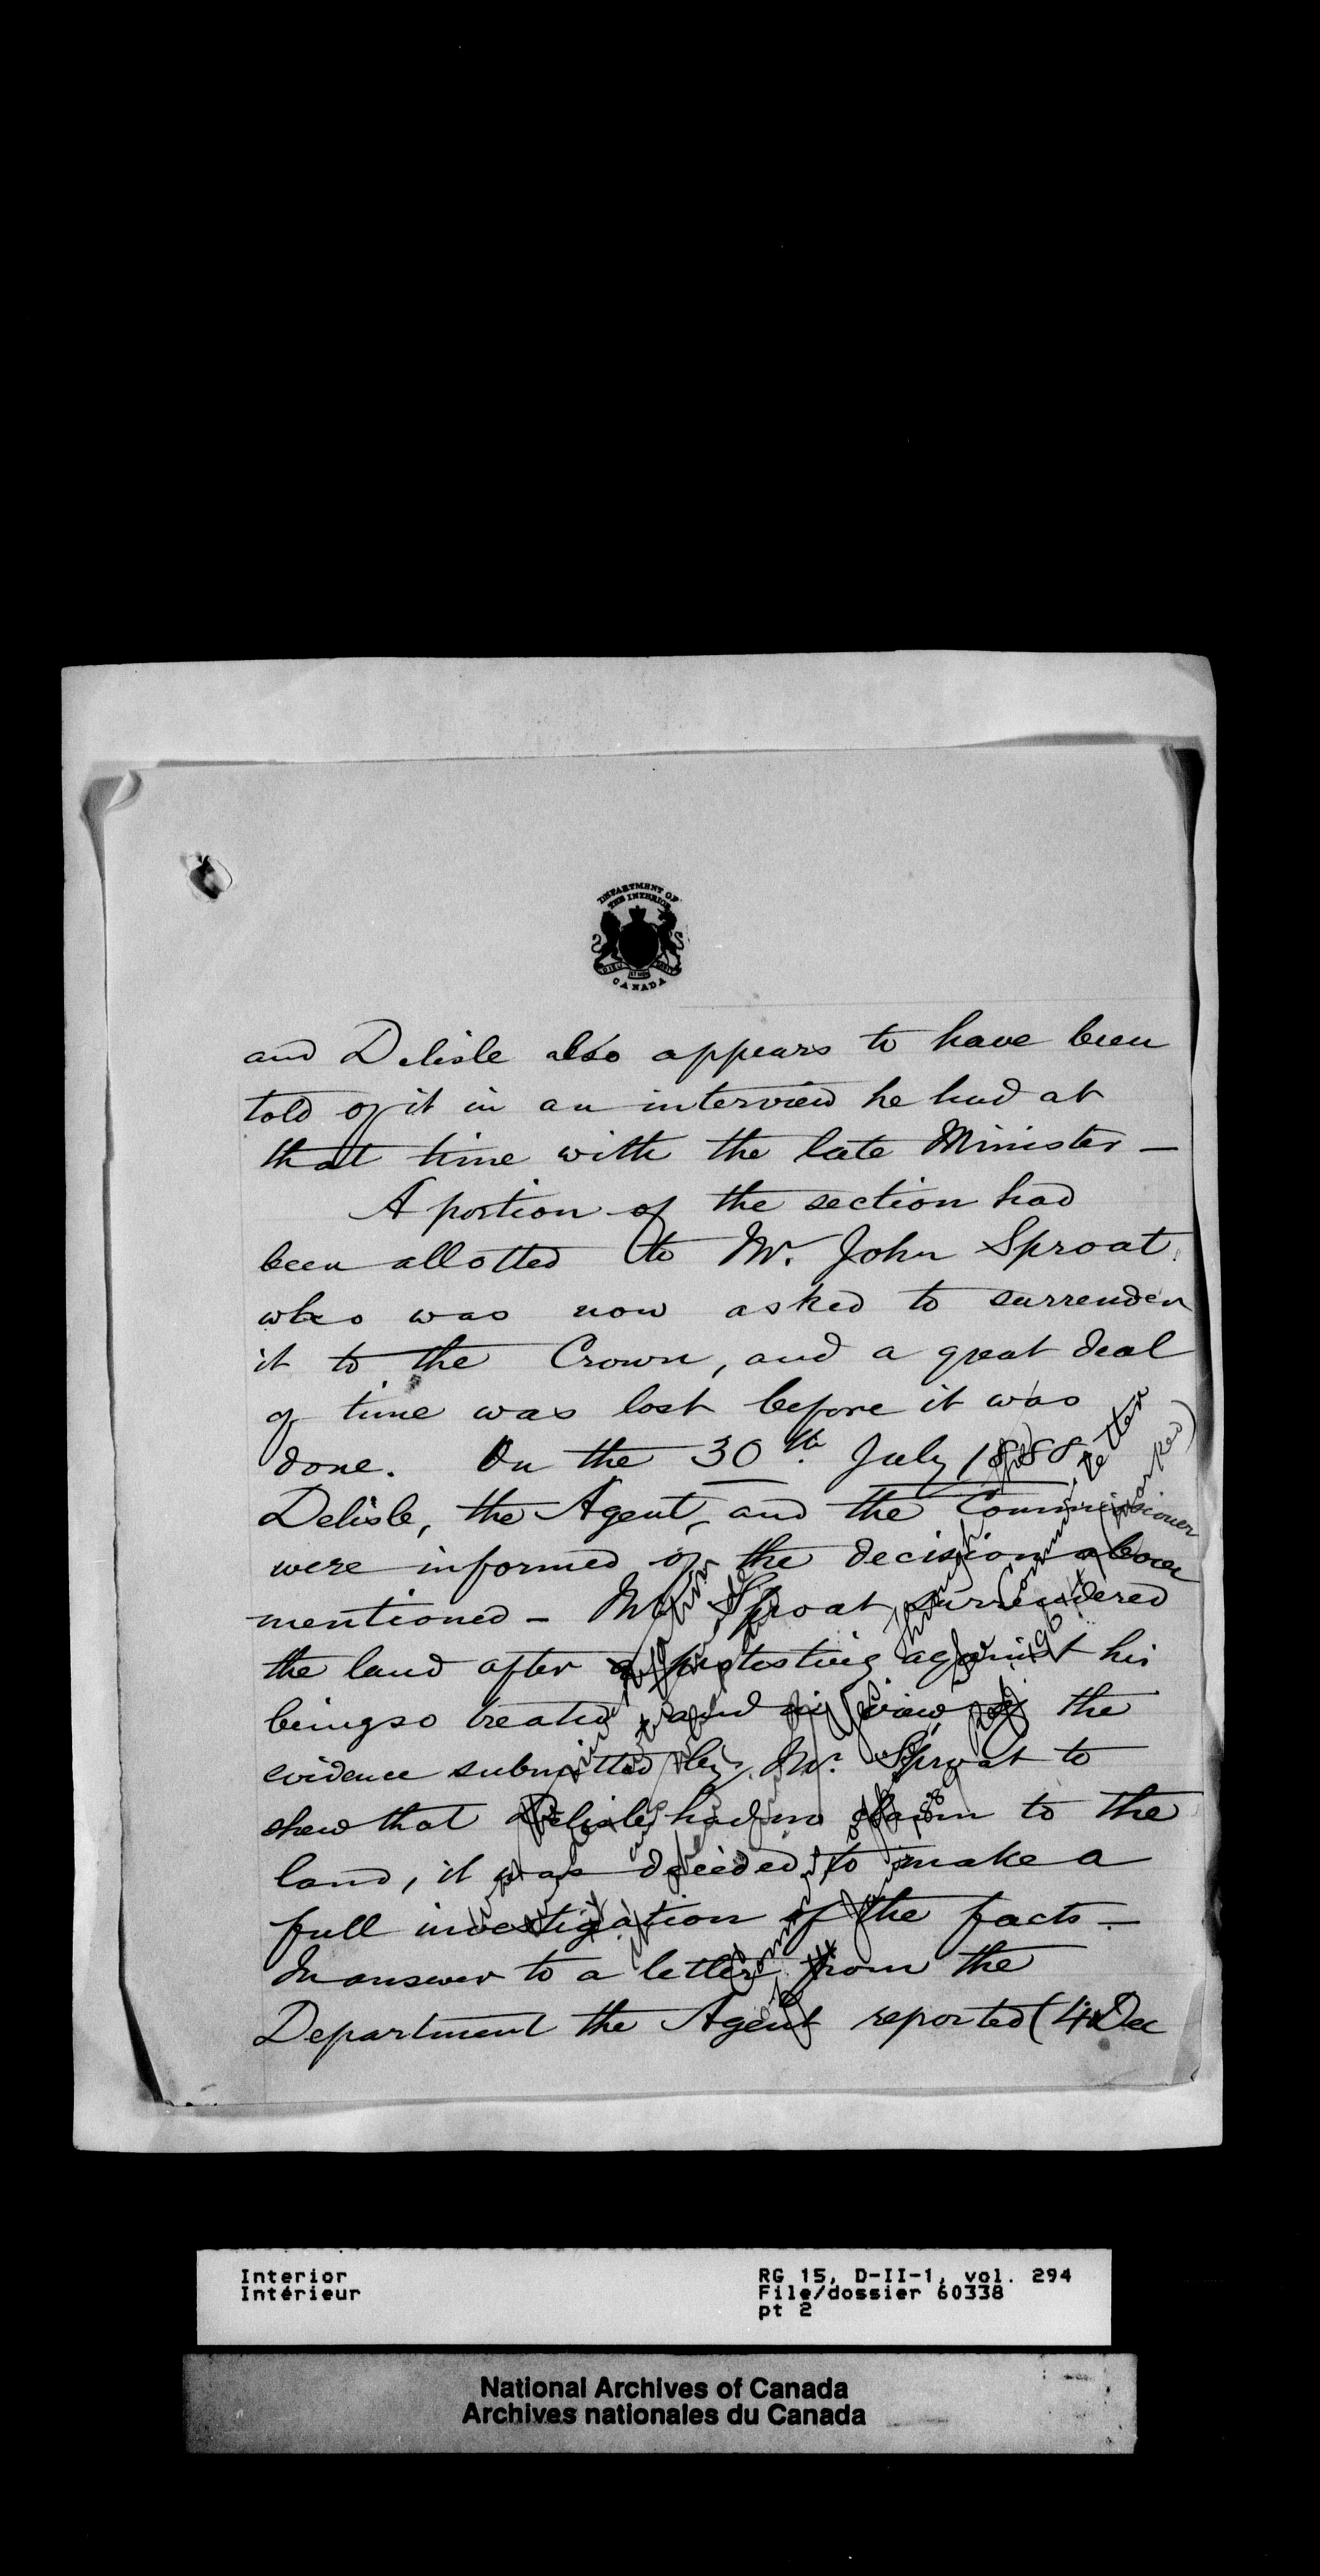 DEPARTMENT OF
THE INTERIOR
CANADA
and Delisle also appears to have been
told of it in an interview he had at
that time with the late Minister —
A portion of the section had
been allotted to Mr. John Sproat
who was now asked to surrender
it to the Crown, and a great deal
of time was lost before it was
done. On the 30th. July 1888
Delisle, the Agent, and the Commissioner
were informed of the decision above
mentioned - Mr. Sproat surrendered
the land after protesting against his
being so treated and in view of the
evidence submitted by Mr. Sproat to
shew that Delisle had no claim to the
land, it was decided to make a
full investigation of the facts —
In answer to a letter from the
Department the Agent reported (4 Dec
letter
Interior
Intérieur
RG 15, D-II-1, vol. 294
File/dossier 60338
pt 2
National Archives of Canada
Archives nationales du Canada